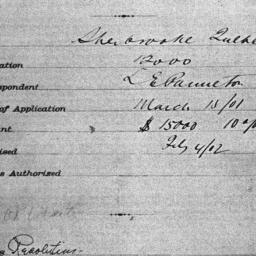 Sherbrooke Quebe
ation 12000
pondent L E Panneton
of Application March 15/01
nt $ 15000 10
ised Feby 4/02
s Authorized